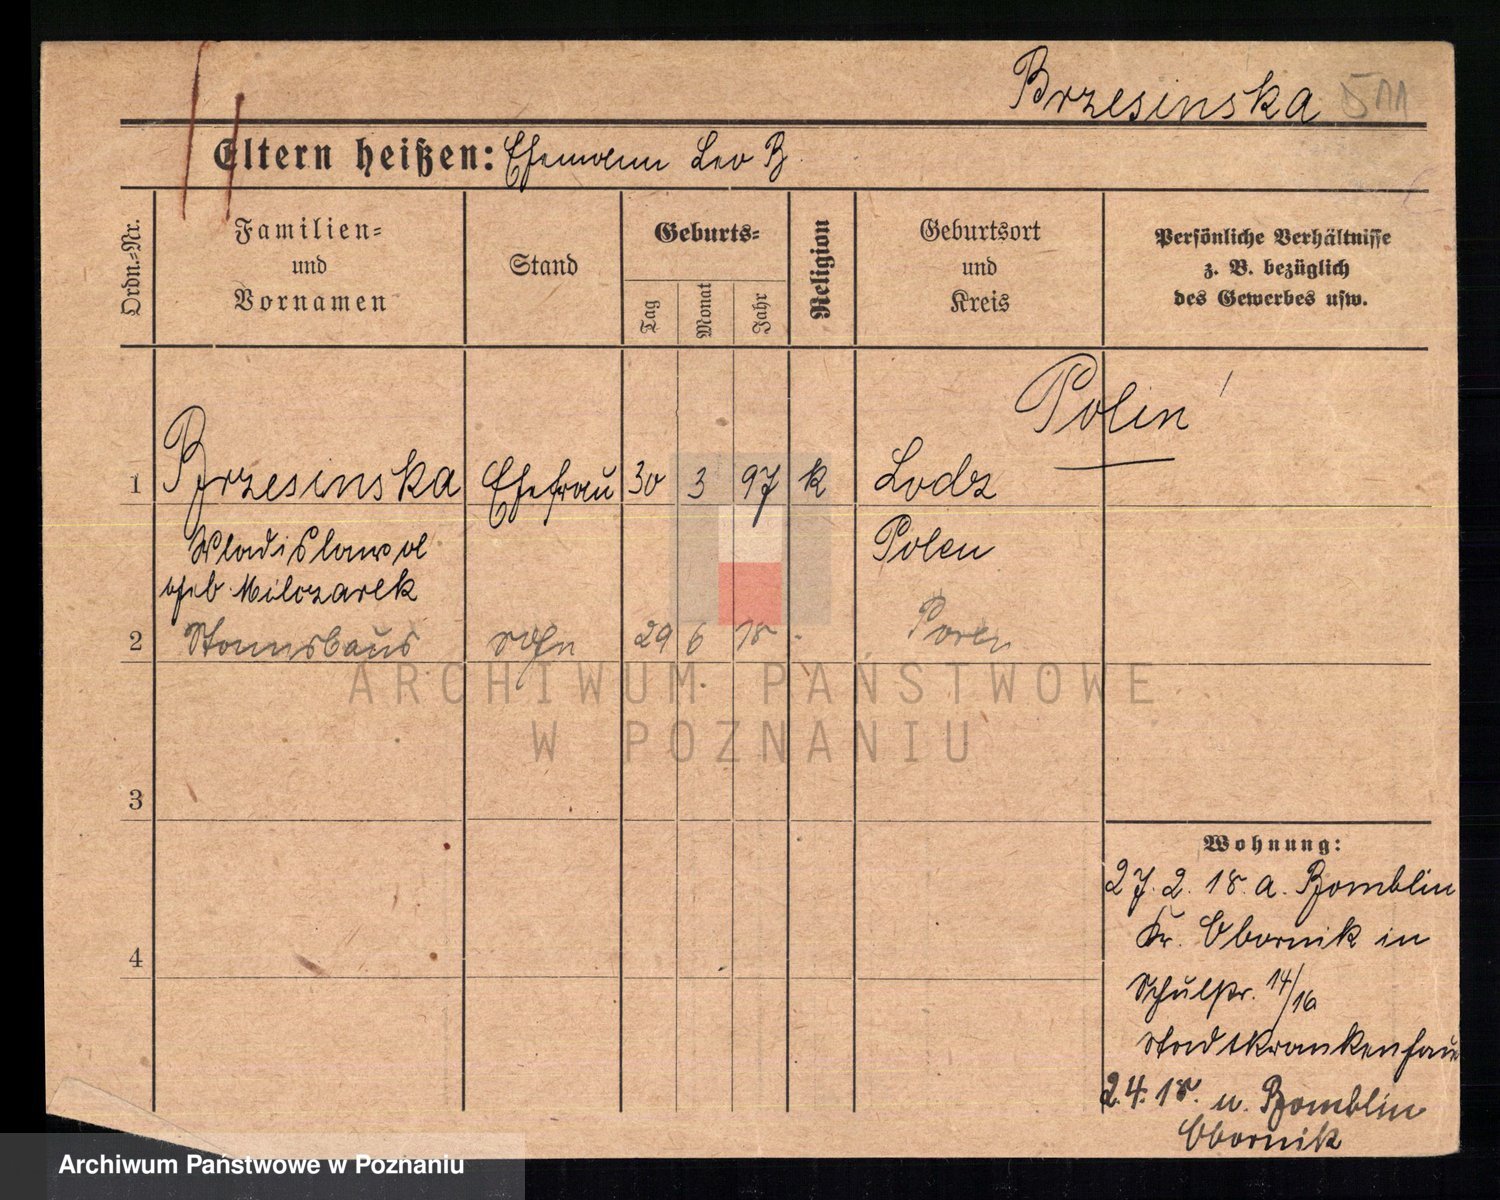 Brzesinska 511
Eltern heißen: Ehemann Leo B.
Ordn.-Nr.
Familien-
und
Vornamen
Stand
Geburts-
Tag
Monat
Jahr
Religion
Geburtsort
und
Kreis
Persönliche Verhältnisse
z. B. bezüglich
des Gewerbes usw.
Polin
1 Brzesinska Ehefrau 30 3 97 k Lodz
Wladislawa Polen
geb. Milczarek
2 Sohn 29 6 18 Posen
3
4
ARCHIWUM PAŃSTWOWE
W POZNANIU
Wohnung:
27. 2. 18. a. Bomblin
Kr. Obornik in
Schulstr. 14/16
Stadtkrankenhau
2.4.18. n. Bomblin
Obornik
Archiwum Państwowe w Poznaniu